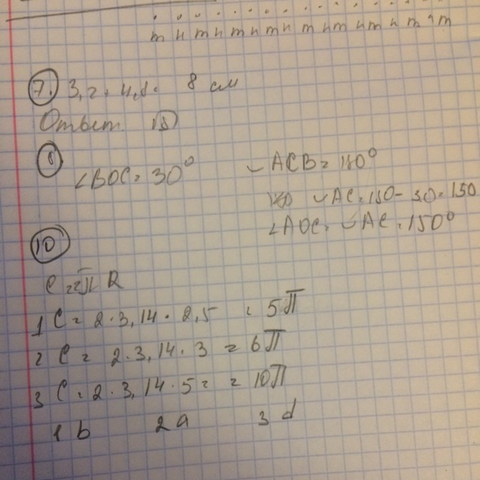 m n m n m n m n m n m n m n m
7. 3,2 + 4,8 = 8 см
Ответ В)
8
∠BOC = 30° ◡ACB = 180°
◡AC = 180 - 30 = 150
∠AOC = ◡AC = 150°
10
C = 2π R
1 C = 2 · 3,14 · 2,5 = 5π
2 C = 2 · 3,14 · 3 = 6π
3 C = 2 · 3,14 · 5 = = 10π
1 b 2 a 3 d